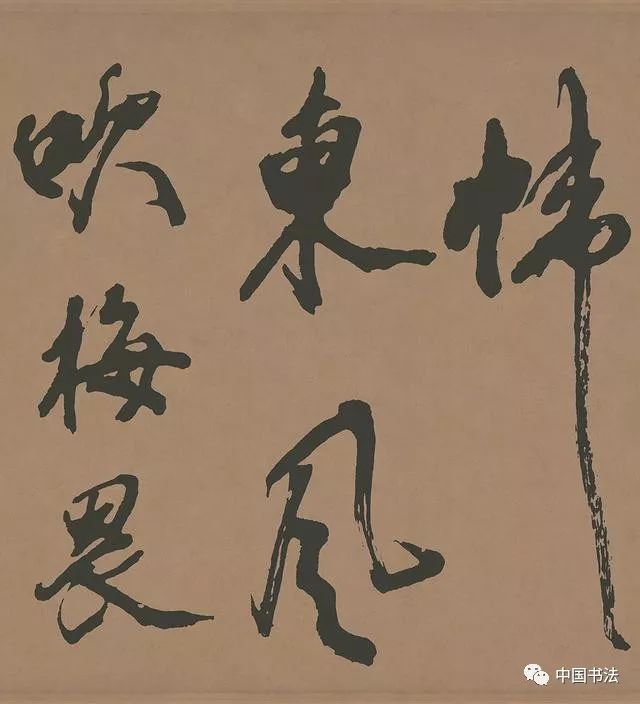 幃
東風
吹梅畏
中国书法